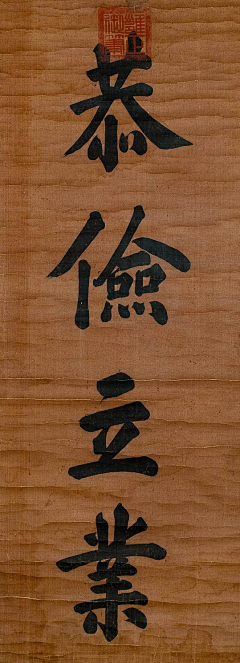 恭儉立業